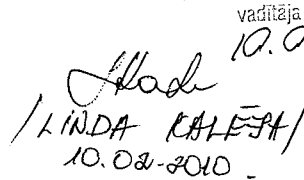 vadītāja
10.0
/LINDA KALĒJA/
10.02-2010